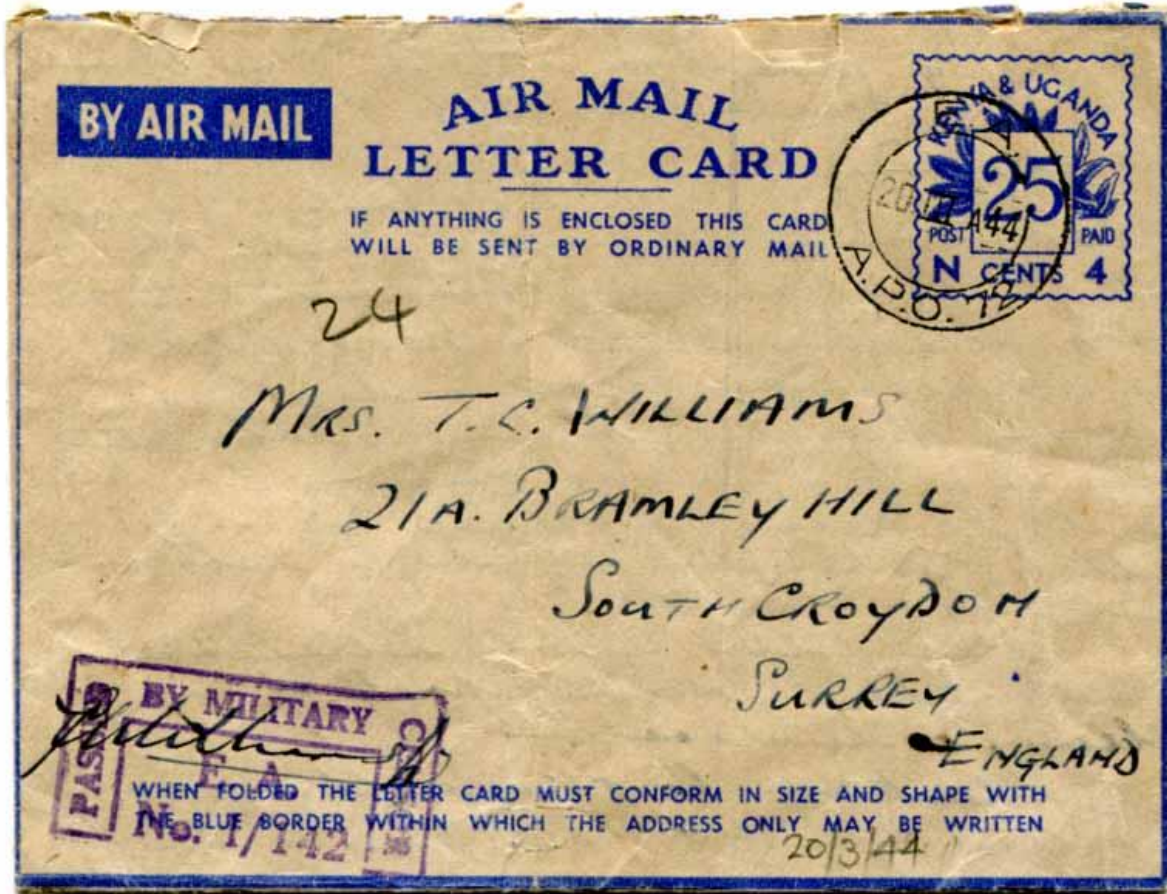 BY AIR MAIL
AIR MAIL
LETTER CARD
IF ANYTHING IS ENCLOSED THIS CARD
WILL BE SENT BY ORDINARY MAIL
KENYA & UGANDA
25
POST PAID
N CENTS 4
E A
A44
A.P.O. 72
24
MRS. T.C. WILLIAMS
21A. BRAMLEY HILL
SOUTH CROYDON
SURREY
ENGLAND
PASSED
BY MILITARY
E. A
No. 1/142
WHEN FOLDED THE LETTER CARD MUST CONFORM IN SIZE AND SHAPE WITH
THE BLUE BORDER WITHIN WHICH THE ADDRESS ONLY MAY BE WRITTEN
20/3/44